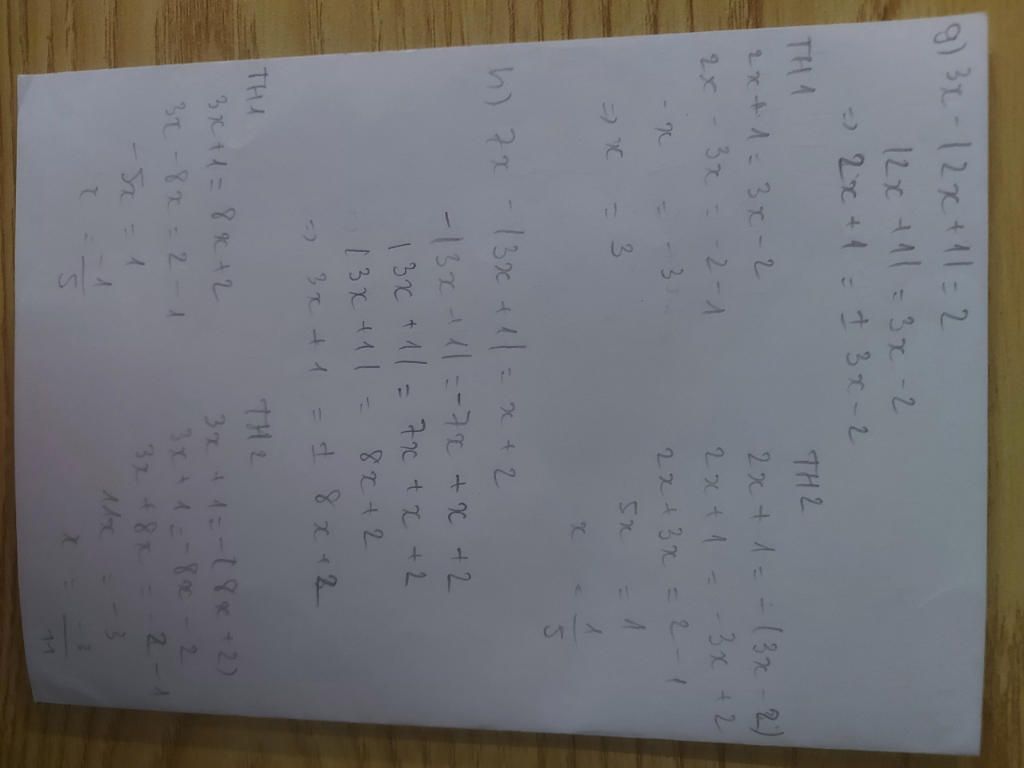 g) 3x - |2x+1| = 2
|2x+1| = 3x-2
=> 2x+1 = ± 3x-2
TH1
2x+1 = 3x-2
2x - 3x = -2-1
-x = -3
=> x = 3
TH2
2x+1 = -(3x-2)
2x+1 = -3x+2
2x+3x = 2-1
5x = 1
x = 1/5
h) 7x - |3x+1| = x+2
-|3x+1| = -7x+x+2
|3x+1| = 7x+x+2
|3x+1| = 8x+2
=> 3x+1 = ± 8x+2
TH1
3x+1 = 8x+2
3x-8x = 2-1
-5x = 1
x = -1/5
TH2
3x+1 = -(8x+2)
3x+1 = -8x-2
3x+8x = -2-1
11x = -3
x = -3/11